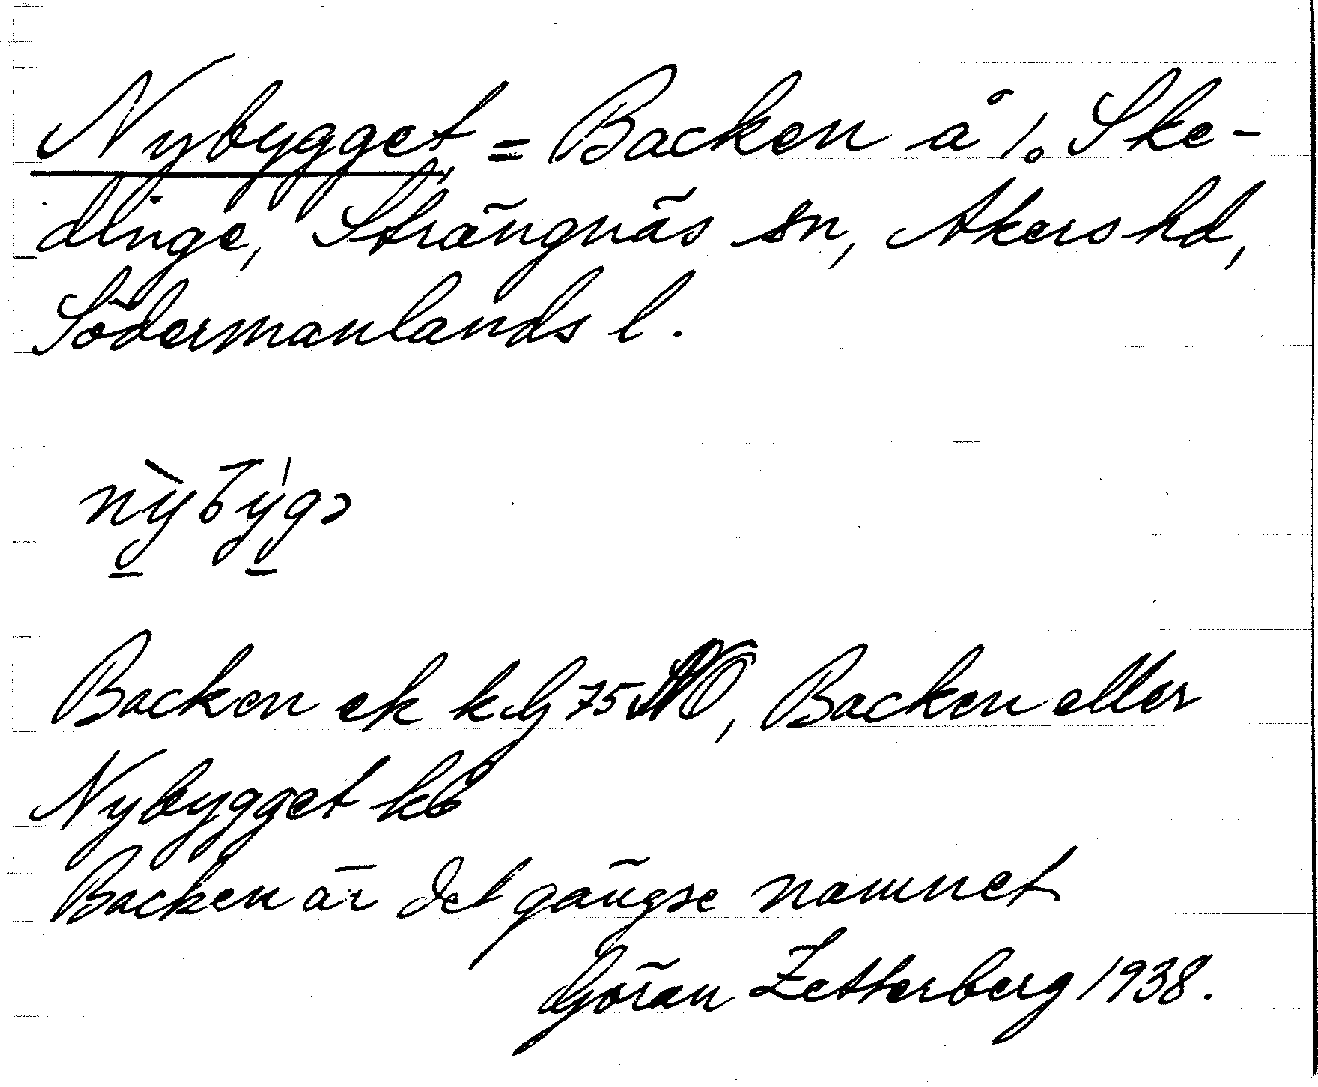 Nybygget = Backen å 1. Ske-
dinge, Strängnäs sn, Åkers hd,
Södermanlands l.
nỳbýgə
Backen ek kbl 75 NO, Backen eller
Nybygget kb
Backen är det gängse namnet
Göran Zetterberg 1938.